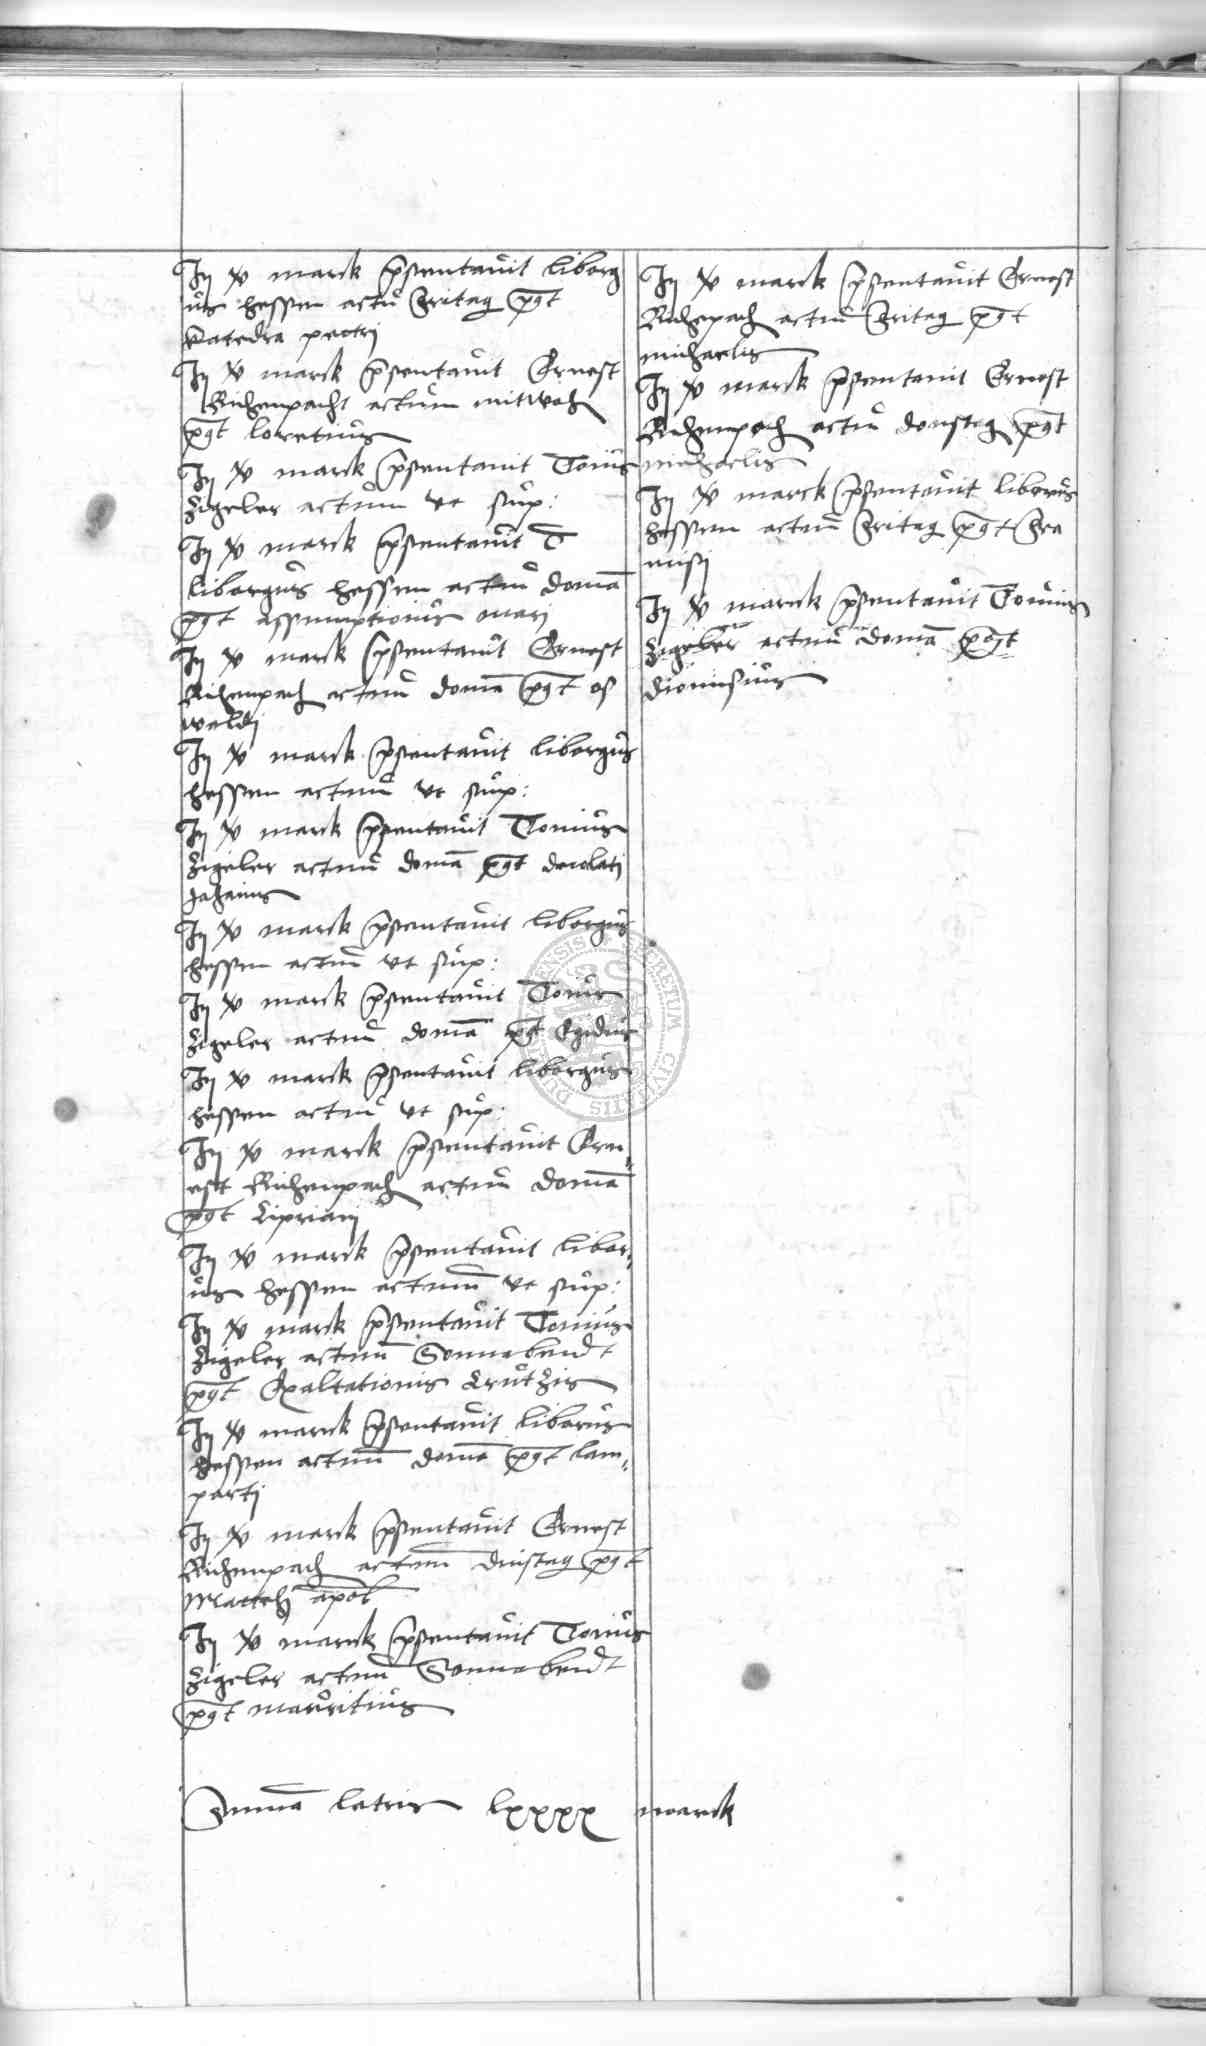 Jtj xv marck presentavit liborg
us hessen actum Fritag post
Catedra pectri
Jtj xv marck presentavit Ernest
Richenpacht actum mitwoch
post lorentius
Jtj xv marck presentavit Tonius
Zigeler actum ut sup:
Jtj xv marck presentavit T
liborgus hessen actum doma
post assumptionis mari
Jtj xv marck presentavit Ernest
Richenpach actum doma post os
waldj
Jtj xv marck presentavit liborgus
hessen actum ut sup:
Jtj xv marck presentavit Tonius
Zigeler actum doma post decolati
Johanis
Jtj xv marck presentavit liborgus
hessen actum ut sup:
Jtj xv marck presentavit Tonius
Zigeler actum doma post Egidius
Jtj xv marck presentavit liborgus
hessen actum ut sup:
Jtj xv marck presentavit Ern
est Richenpach actum doma
post Cipriani
Jtj xv marck presentavit libor
us hessen actum ut sup:
Jtj xv marck presentavit Tonius
Zigeler actum Sonnabendt
post Exaltationis Crutzis
Jtj xv marck presentavit liborus
hessen actum doma post lam
partj
Jtj xv marck presentavit Ernest
Richenpach actum dinstag post
Mattehj apol
Jtj xv marck presentavit Tonius
Zigeler actum Sonnabendt
post mauritius
Jtj xv marck presentavit Ernest
Richepach actum Fritag post
michaelis
Jtj xv marck presentavit Ernest
Richenpach actum donstag post
michaelis
Jtj xv marck presentavit liborus
hessen actum Fritag post Fra
nusj
Jtj xv marck presentavit Tonius
Zigeler actum doma post
dionisius
Summa latris lxxxx marck